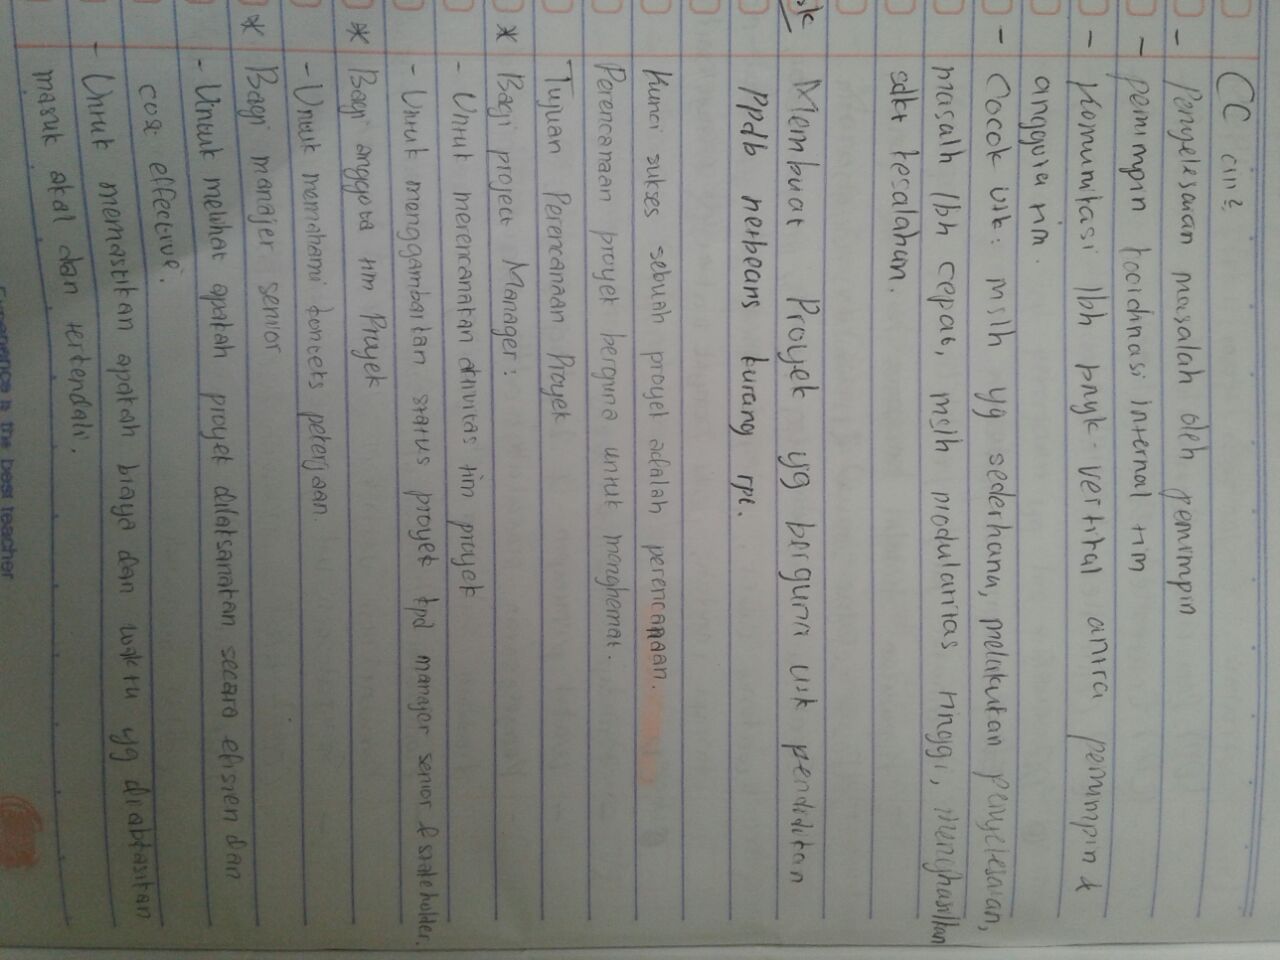 CC ciri²
- Penyelesaian masalah oleh pemimpin
- pemimpin koordinasi internal tim
- Komunikasi lbh bnyk - vertikal antra pemimpin &
anggota tim.
- Cocok utk : mslh yg sederhana, melakukan penyelesaian,
masalh lbh cepat, mslh modularitas tinggi, menghasilkan
sdkt kesalahan.
Membuat Proyek yg berguna utk pendidikan
PPdb netbeans kurang rpt.
Kunci sukses sebuah proyek adalah perencanaan.
Perencanaan proyek berguna untuk menghemat.
Tujuan Perencanaan Proyek
* Bagi project Manager :
- Untuk merencanakan aktivitas tim proyek
- Untuk menggambarkan status proyek kpd manajer senior & stakeholder.
* Bagi anggota tim Proyek
- Untuk memahami konteks pekerjaan.
* Bagi manajer senior
- Untuk melihat apakah proyek dilaksanakan secara efisien dan
cost effective.
- Untuk memastikan apakah biaya dan waktu yg dialokasikan
masuk akal dan terkendali.
Experience is the best teacher